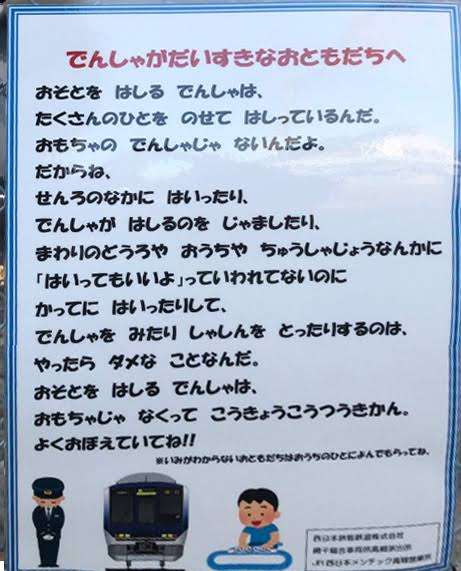 でんしゃがだいすきなおともだちへ
おそとを はしる でんしゃは、
たくさんのひとを のせて はしっているんだ。
おもちゃの でんしゃじゃ ないんだよ。
だからね、
せんろのなかに はいったり、
でんしゃが はしるのを じゃましたり、
まわりのどうろや おうちや ちゅうしゃじょうなんかに
「はいってもいいよ」っていわれてないのに
かってに はいったりして、
でんしゃを みたり しゃしんを とったりするのは、
やったら ダメな ことなんだ。
おそとを はしる でんしゃは、
おもちゃじゃ なくって こうきょうこうつうきかん。
よくおぼえていてね!!
※いみがわからないおともだちはおうちのひとによんでもらってね。
西日本旅客鉄道株式会社
JR西日本メンテック